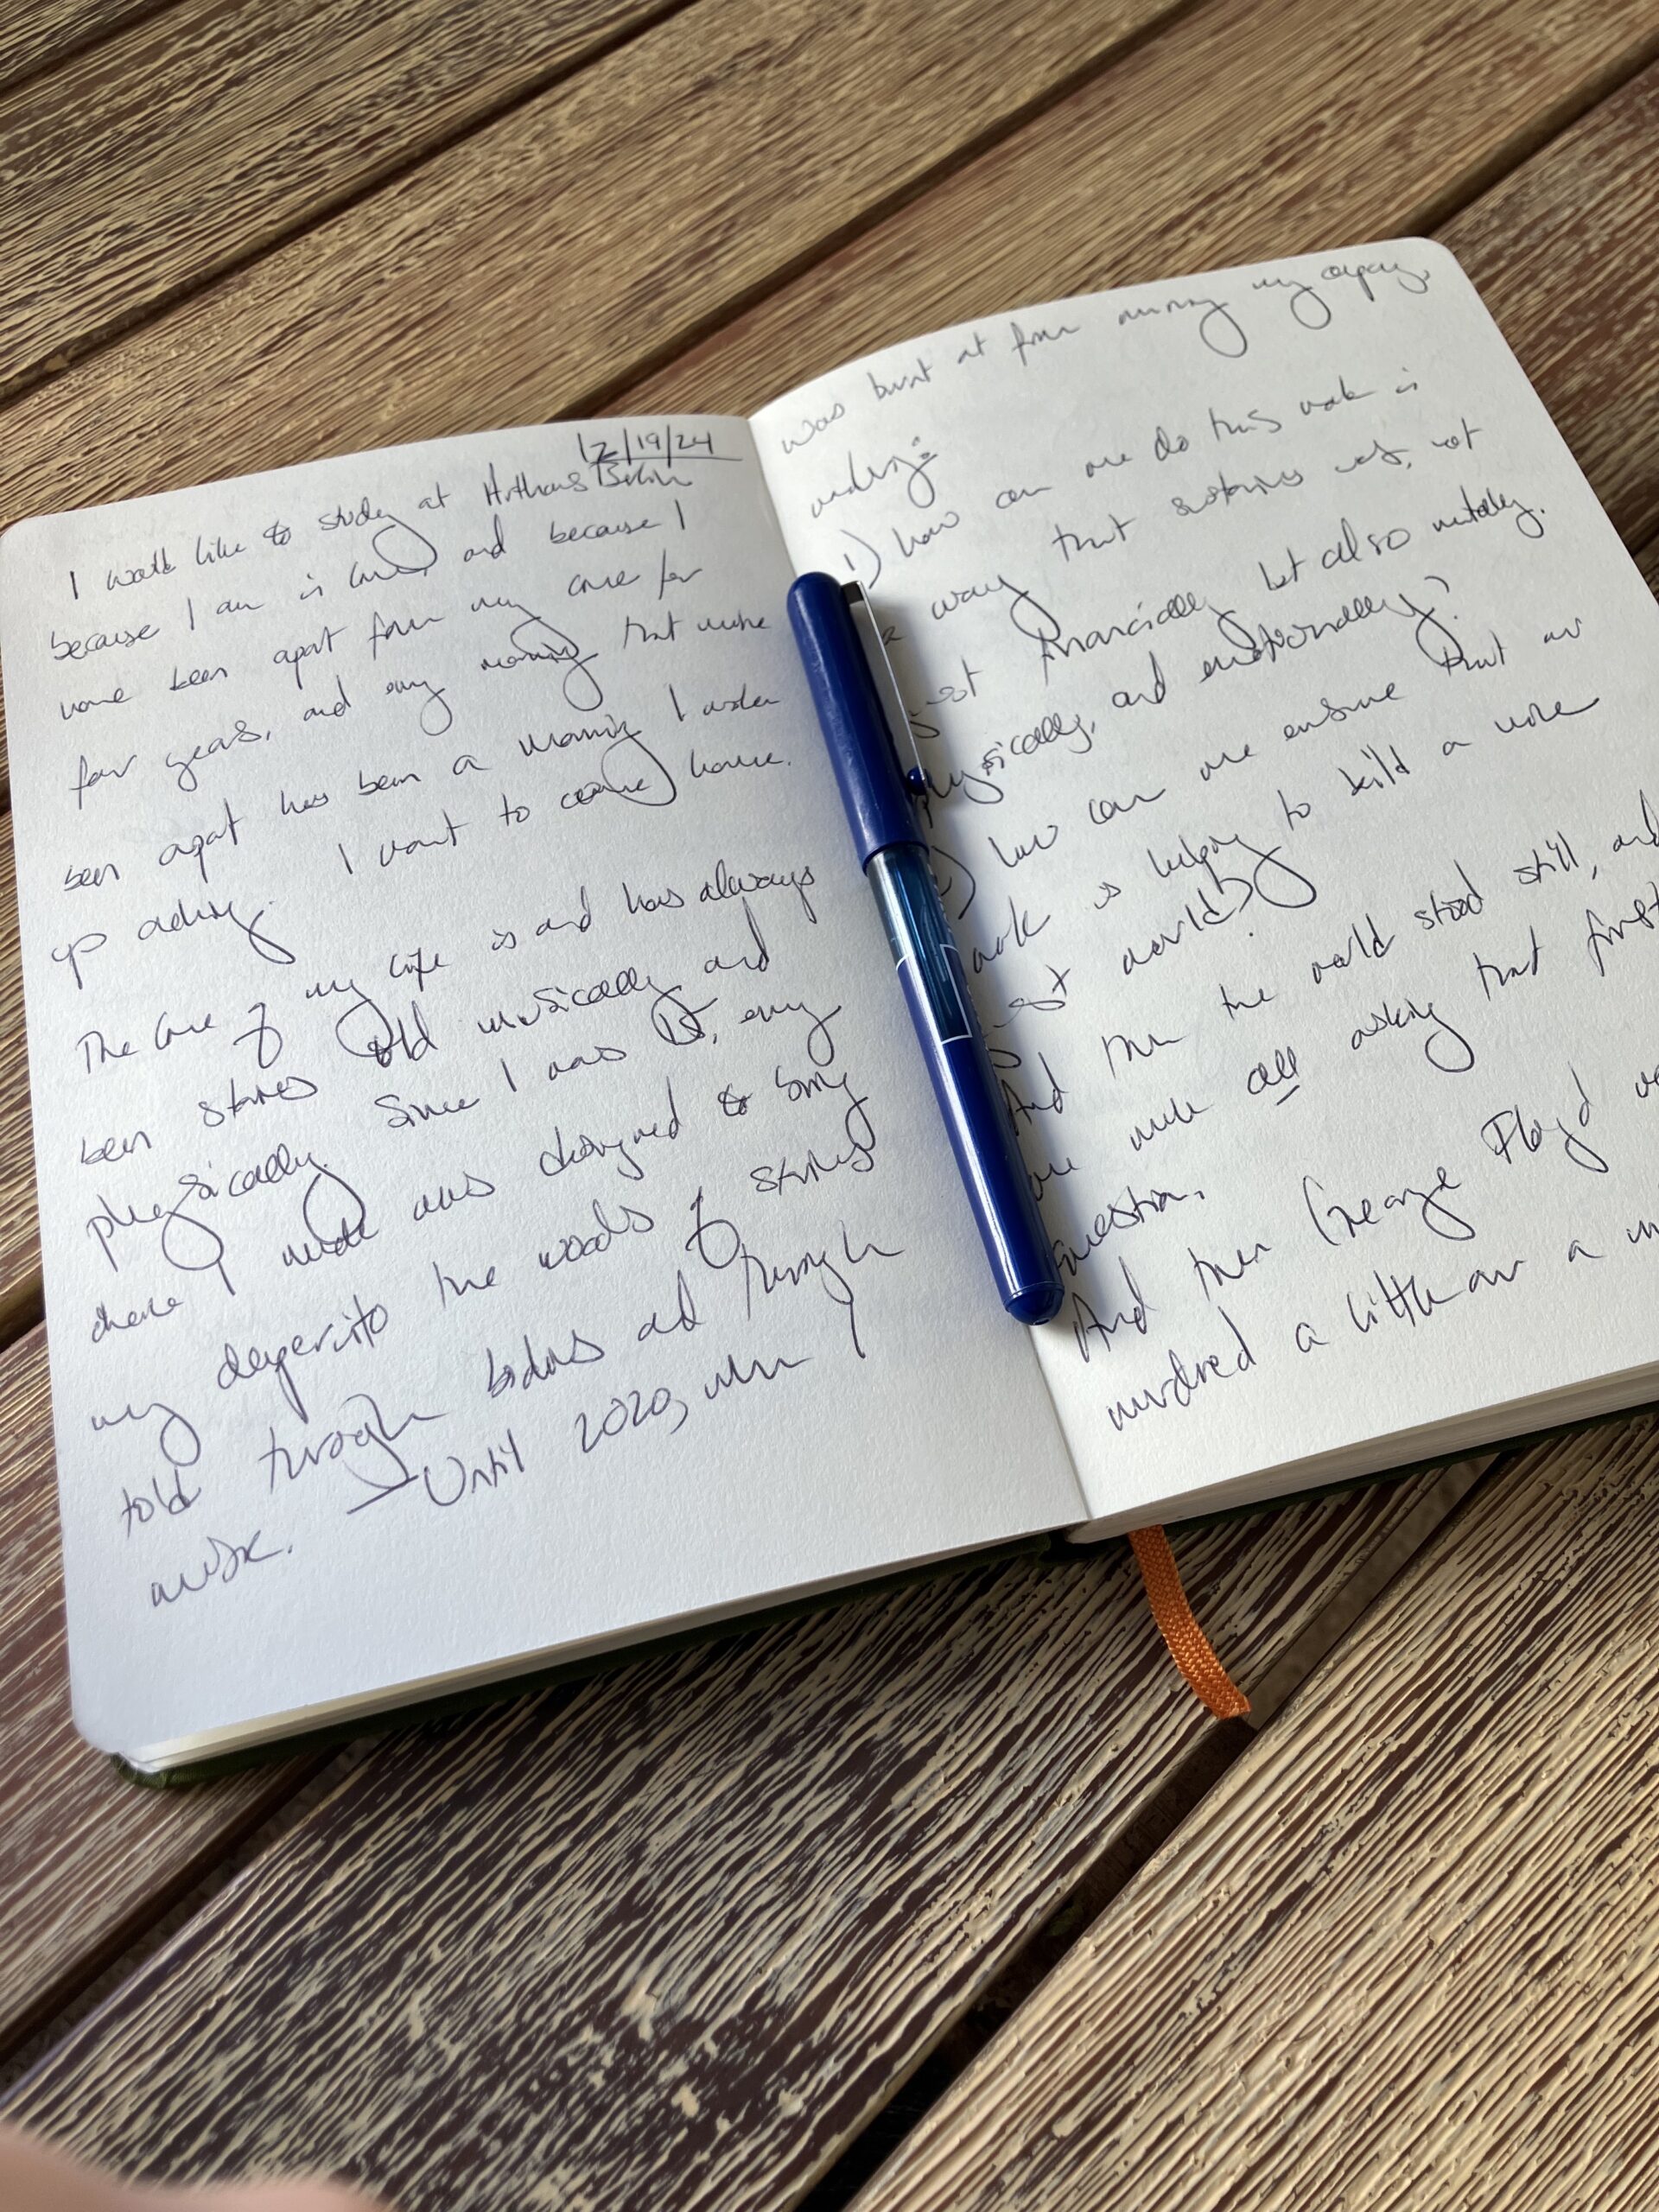 12/19/24
I would like to study at Arthaus Berlin
because I am in love, and because I
have been apart from my love for
four years, and every morning that we've
been apart has been a morning I wake
up aching. I want to come home.
The love of my life is and has always
been stories told musically and
physically. Since I was 15, every
choice I made was designed to bring
my deeper into the woods of stories
told through bodies and through
music. Until 2020, when I
was burnt out from running my company,
1) how can one do this work in
a way that sustains us, not
just financially but also mentally,
physically, and emotionally?
2) how can we ensure that our
work is helping to build a more
just world?
And then the world stood still, and
we were all asking that first
question.
And then George Floyd was
murdered a little over a